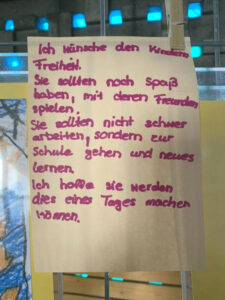 Ich wünsche den Kindern
Freiheit.
Sie sollten noch Spaß
haben, mit deren Freunden
spielen.
Sie sollten nicht schwer
arbeiten, sondern zur
Schule gehen und neues
lernen.
Ich hoffe sie werden
dies eines Tages machen
können.